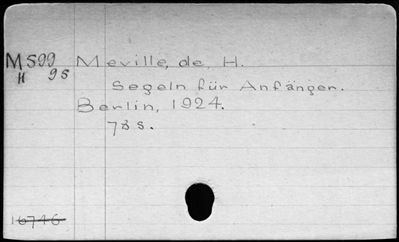 M599 Meville, de H.
H 9s
Segeln für Anfänger.
Berlin, 1924.
78 s.
16746